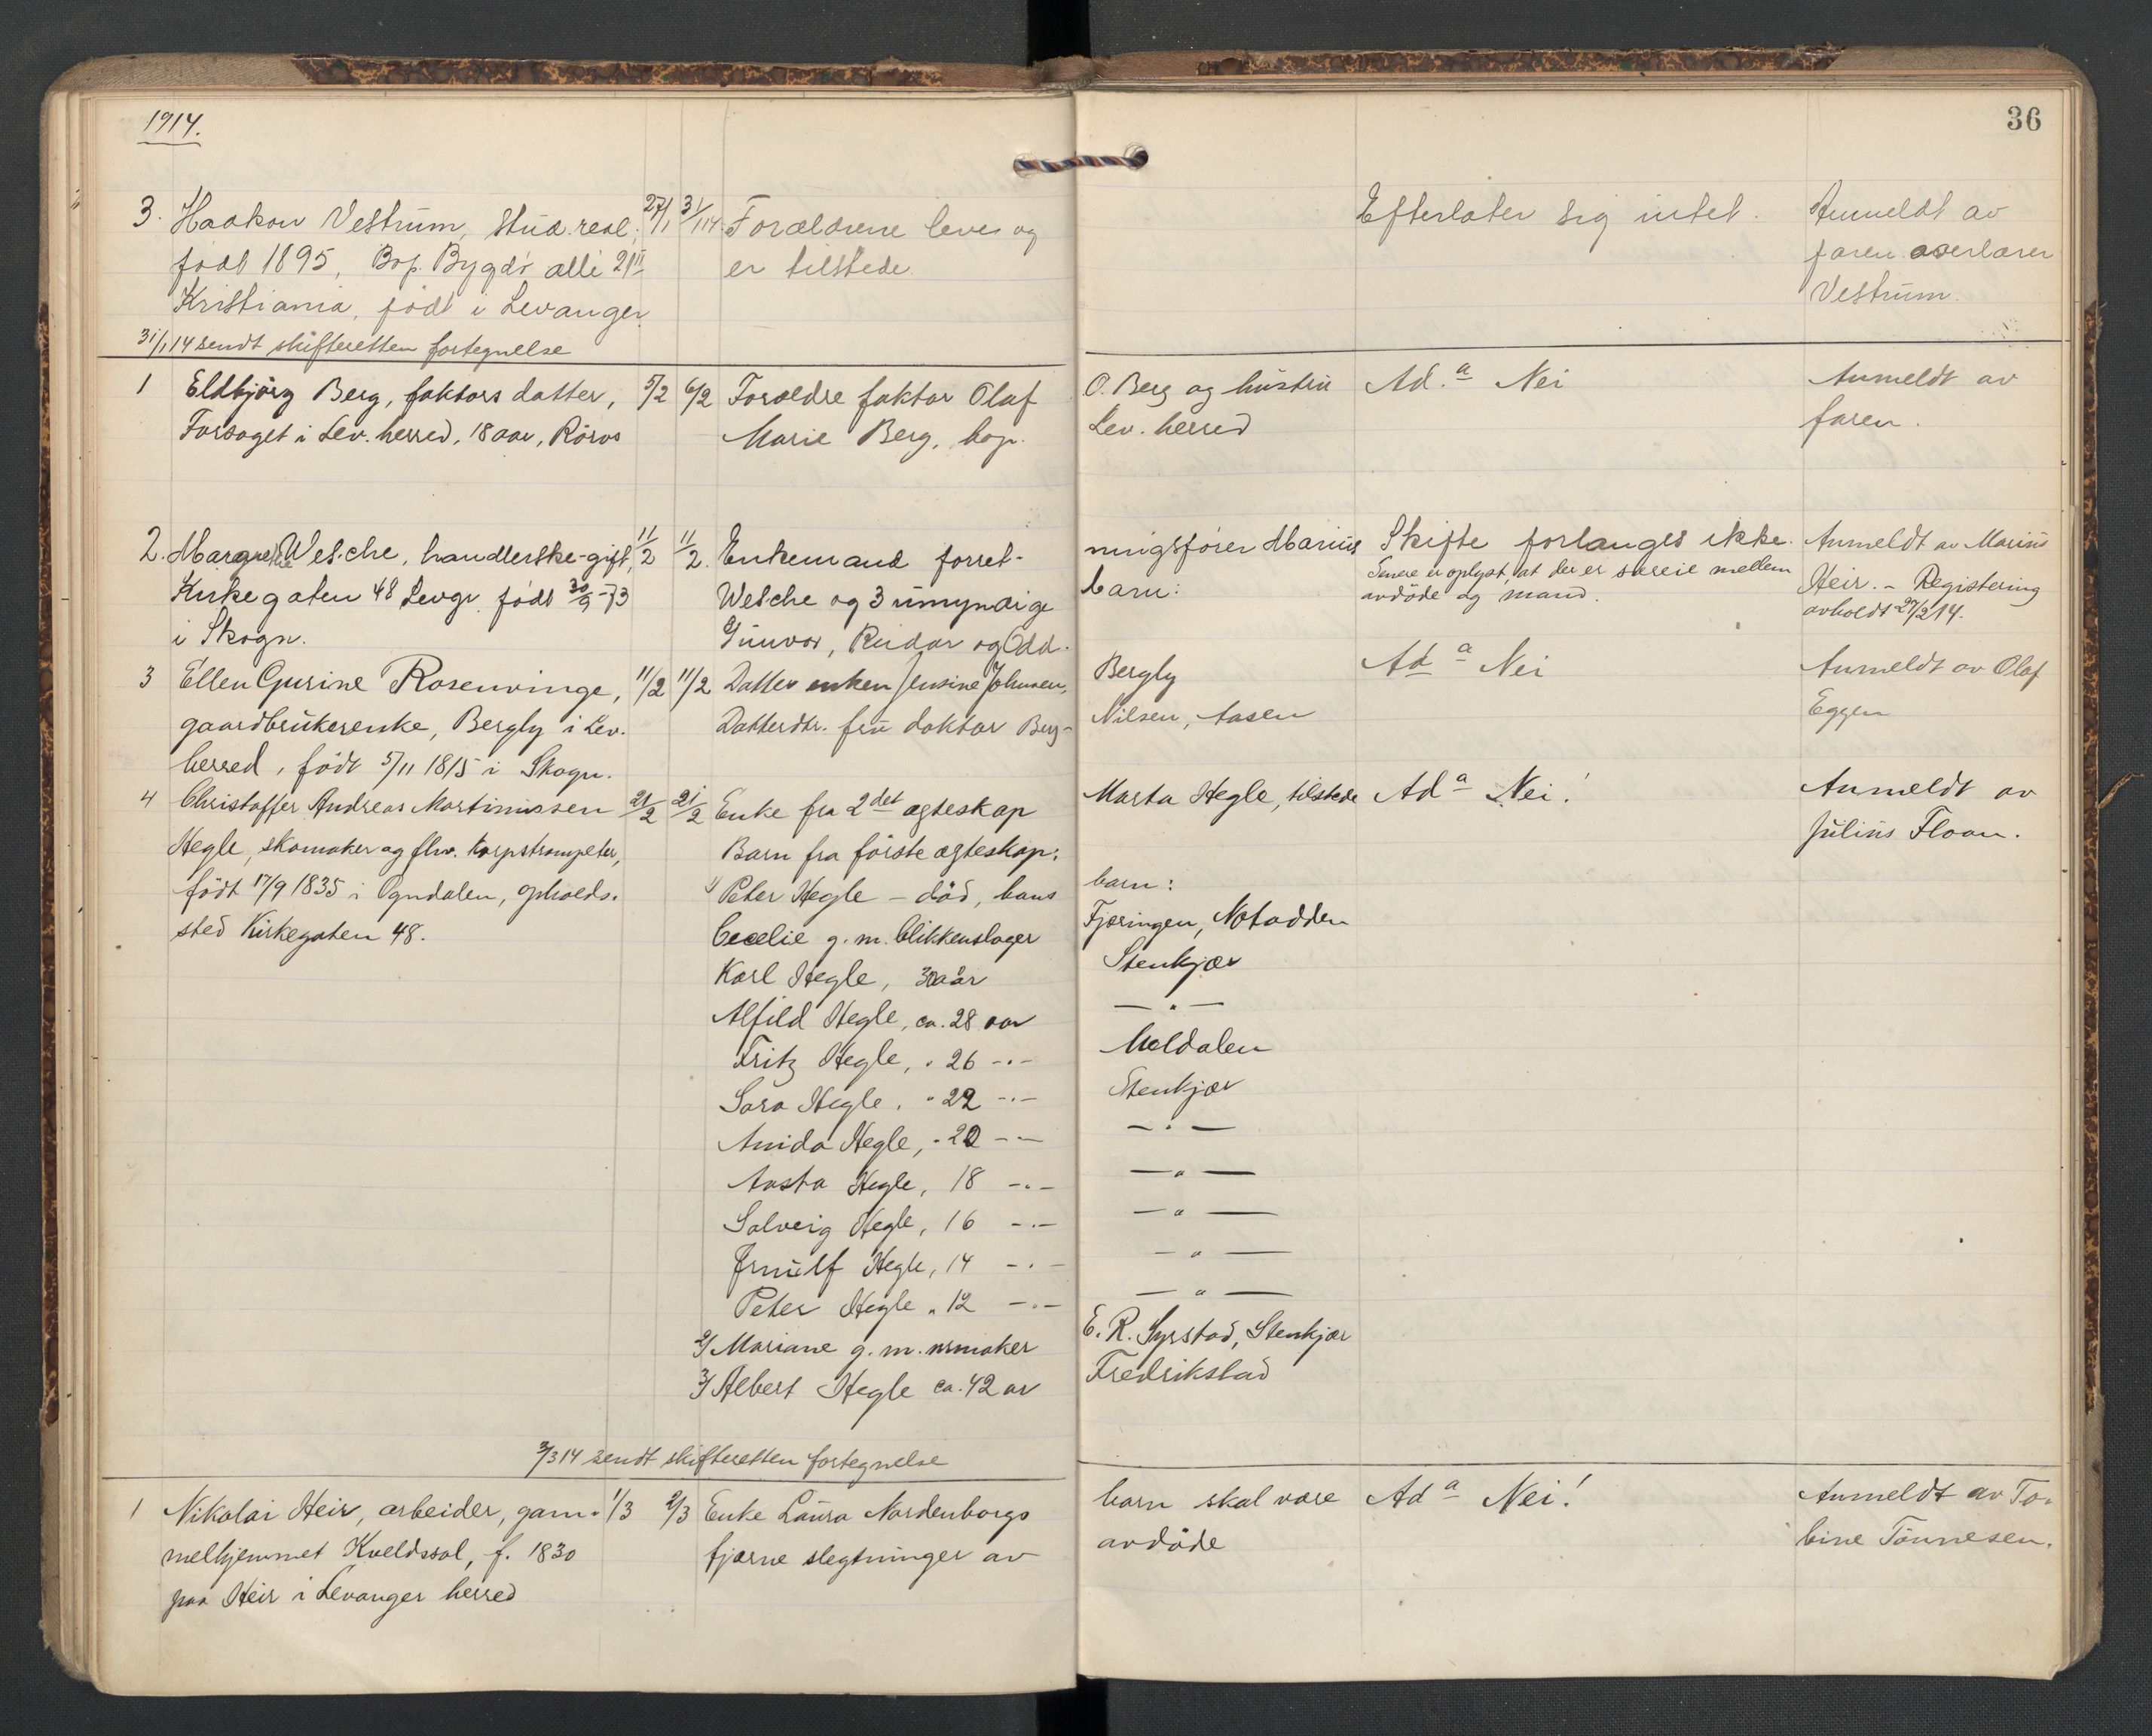 1914.
36
3. Haakon Vestrum, stud. real. 27/1 31/1 14 Forældrene lever og Efterlater sig intet. Anmeldt av
født 1895, Bop. Bygdø alle 21 II er tilstede. faren overlærer
Kristiania, født i Levanger Vestrum.
31/1 14 sendt skifteretten fortegnelse
1 Eldbjörg Berg, faktors datter, 5/2 6/2 Forældre faktor Olaf O. Berg og hustru Ad. a Nei Anmeldt av
i Lev. herred, 18 aar, Röros Marie Berg, bop. Lev. herred faren.
2. Margrethe Welche, handlerske-gift, 11/2 11/2. Enkemand forret- ningsfører Marius Skifte forlanges ikke. Anmeldt av Marius
Senere er oplyst, at der er særeie mellem
Kirkegaten 48 Levgr. født 30/9-73 Welche og 3 umyndige barn: avdöde og mand. Heir. - Registering
i Skogn. Gunvor, Reidar og Odd. avholdt 27/2 14.
3 Ellen Gurine Rosenvinge, 11/2 11/2 Datter enken Jensine Johnsen, Bergly Ad a Nei Anmeldt av Olaf
gaardbrukerenke, Bergly i Lev. Datterdtr. fru doktor Berg- Nilsen, Aasen Eggen
herred, födt 5/11 1815 i Skogn.
4 Christoffer Andreas Martinussen 21/2 21/2 Enke fra 2det ægteskap Marta Hegle, tilstede Ad a Nei! Anmeldt av
Hegle, skomaker og flw. korpstrompeter, Barn fra förste ægteskap: Julius Floan.
födt 17/9 1835 i Ogndalen, opholds- 1/ Peter Hegle - död, hans barn:
sted Kirkegaten 48. Cecelie g. m. blikkenslager Fjæringen, Notodden
Karl Hegle, 30 aar Stenkjær
Alfild Hegle, ca. 28 aar — " —
Fritz Hegle, " 26 -"- Meldalen
Sara Hegle, " 22 -"- Stenkjær
Anida Hegle, " 20 -"- — " —
Aasta Hegle, 18 -"- — " —
Solveig Hegle, 16 -"- — " —
Ørnulf Hegle, 14 -"- — " —
Peter Hegle " 12 -"- — " —
2/ Mariane g. m. urmaker E. R. Syrstad, Stenkjær
3/ Albert Hegle ca. 42 ar Fredrikstad
3/3 14 sendt skifteretten fortegnelse
1 Nikolai Heir, arbeider, gam- 1/3 2/3 Enke Laura Nordenborgs barn skal være Ad a Nei! Anmeldt av To-
melhjemmet Kveldssol, f. 1830 fjærne slegtninger av avdöde bine Tönnesen.
paa Heir i Levanger herred